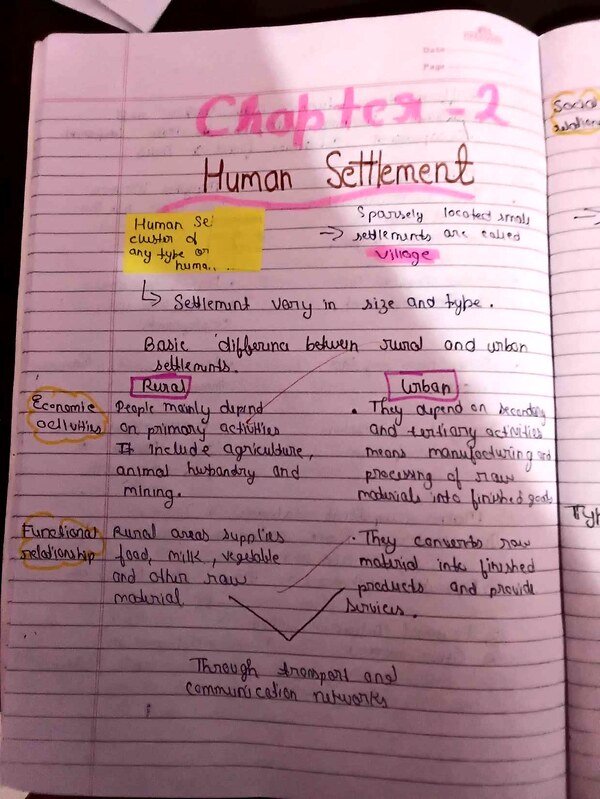 Date
Page
Chapter - 2
Human Settlement
Human Se
cluster of
any type or
human
Sparsely located small
→ settlements are called
Village
↳ Settlement vary in size and type.
Basic difference between rural and urban
settlements.
Rural
Urban
Economic
activities
People mainly depend
on primary activities
It include agriculture,
animal husbandry and
mining.
• They depend on secondary
and tertiary activities
means manufacturing and
processing of raw
materials into finished goods
Functional
relationship
Rural areas supplies
food, milk, vegetable
and other raw
material
• They converts raw
material into finished
products and provide
services.
Through transport and
communication networks
Social